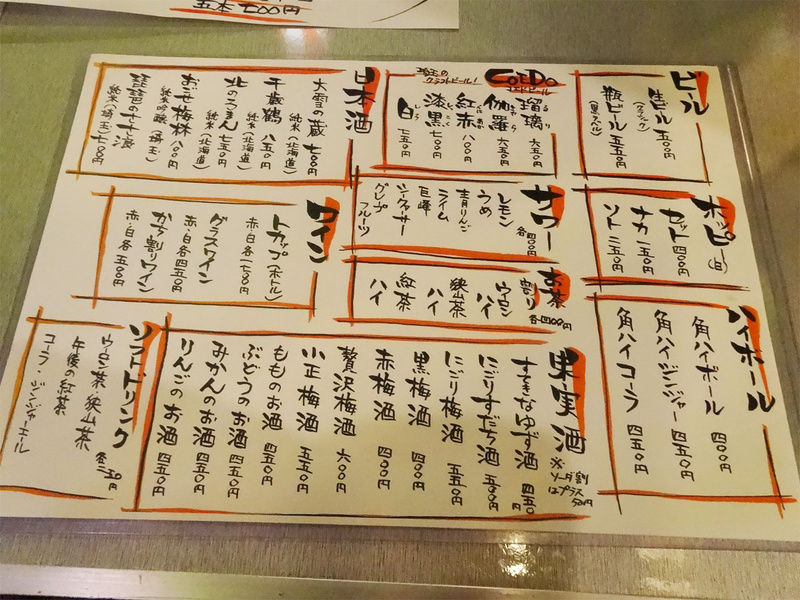 五本 七〇〇円
ビール
生ビール 五〇〇円
(クラシック)
瓶ビール 五五〇円
(黒ラベル)
COEDO
コエドビール
埼玉の
クラフトビール!
瑠璃 六五〇円
るり
伽羅 六五〇円
キャラ
紅赤 八〇〇円
べにあか
漆黒 七〇〇円
しっこく
白 七五〇円
しろ
日本酒
大雪の蔵 七〇〇円
純米(北海道)
千歳鶴 八五〇円
純米(北海道)
北のろまん 七五〇円
純米(北海道)
おごせ梅林 八〇〇円
純米吟醸(埼玉)
琵琶のささ浪 七〇〇円
純米(埼玉)
ホッピー(白)
セット 四〇〇円
ナカ 一五〇円
ソト 二五〇円
サワー
各四〇〇円
レモン
うめ
青りんご
ライム
巨峰
シークヮーサー
グレープ
フルーツ
お茶割り
各四〇〇円
ウーロンハイ
狭山茶ハイ
紅茶ハイ
ワイン
トカップ(ボトル)
赤・白各一七〇〇円
グラスワイン
赤・白各四五〇円
かち割りワイン
赤・白各五〇〇円
ハイボール
角ハイボール 四〇〇円
角ハイジンジャー 四五〇円
角ハイコーラ 四五〇円
果実酒
※ソーダ割
はプラス
50円
すてきなゆず酒 四五〇円
にごりすだち酒 五〇〇円
にごり梅酒 五五〇円
黒梅酒 四〇〇円
赤梅酒 四〇〇円
贅沢梅酒 六〇〇円
小正梅酒 五五〇円
もものお酒 四五〇円
ぶどうのお酒 四五〇円
みかんのお酒 四五〇円
りんごのお酒 四五〇円
ソフトドリンク
各二五〇円
ウーロン茶・狭山茶
午後の紅茶
コーラ・ジンジャーエール